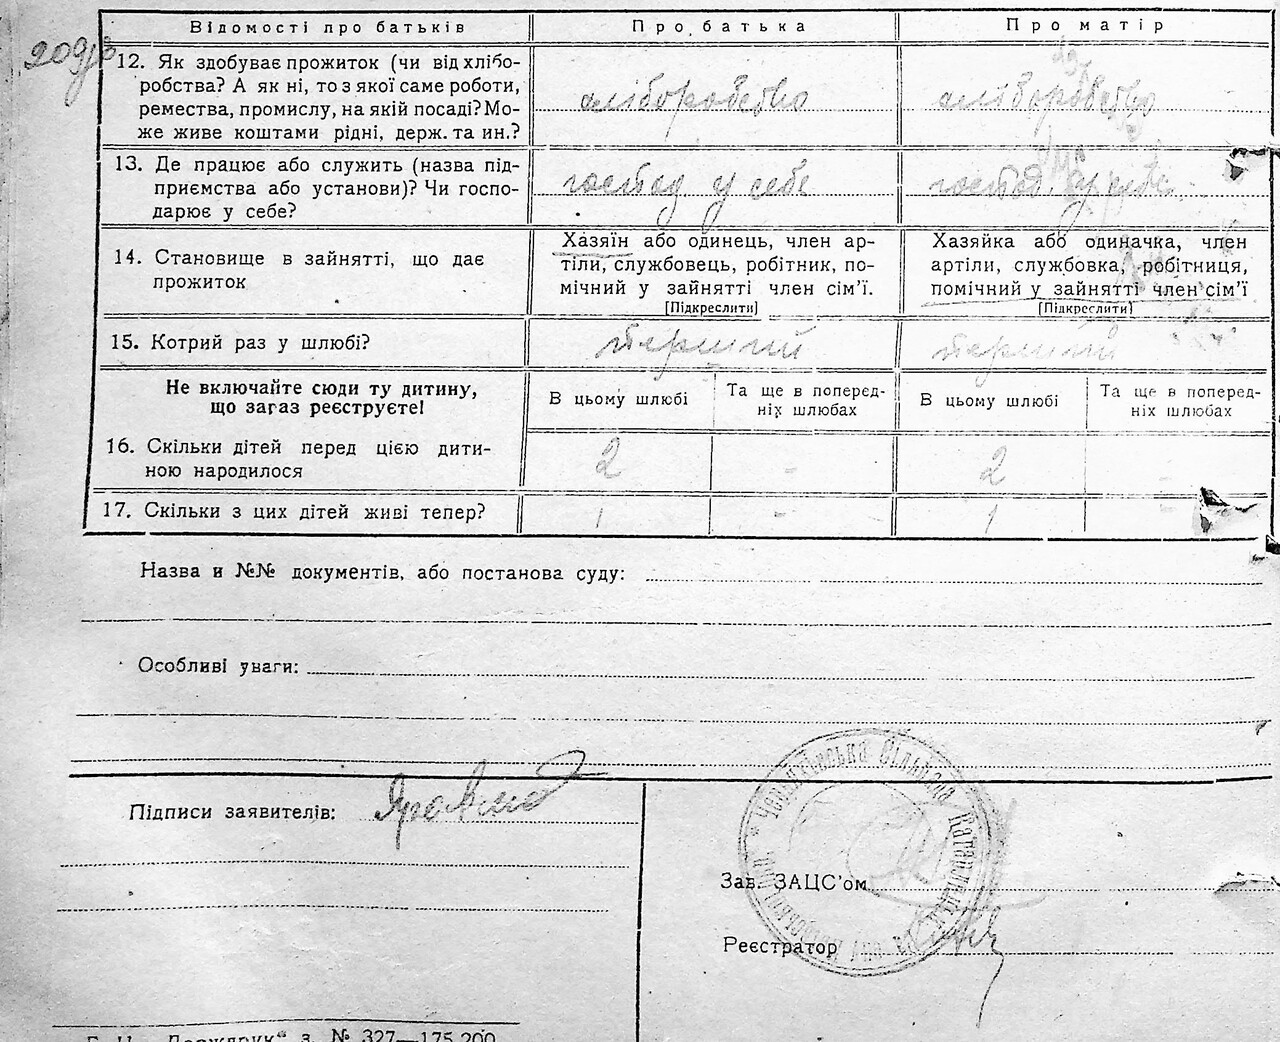 Відомості про батьків Про батька Про матір
209
12. Як здобуває прожиток (чи від хлібо-
робства? А як ні, то з якої саме роботи,
ремества, промислу, на якій посаді? Мо-
же живе коштами рідні, держ. та ин.?
хліборобство хліборобство
13. Де працює або служить (назва під-
приємства або установи)? Чи госпо-
дарює у себе?
господ у себе господ. у себе
14. Становище в зайнятті, що дає
прожиток
Хазяїн або одинець, член ар-
тіли, службовець, робітник, по-
мічний у зайнятті член сім'ї.
[Підкреслити]
Хазяйка або одиначка, член
артіли, службовка, робітниця,
помічний у зайнятті член сім'ї
[Підкреслити]
15. Котрий раз у шлюбі? перший перший
Не включайте сюди ту дитину,
що загаз реєструєте!
В цьому шлюбі
Та ще в поперед-
ніх шлюбах
В цьому шлюбі
Та ще в поперед-
ніх шлюбах
16. Скільки дітей перед цією дити-
ною народилося
2 - 2 -
17. Скільки з цих дітей живі тепер? 1 - 1
Назва и №№ документів, або постанова суду:
Особливі уваги:
Підписи заявителів:
Сільська
Зав. ЗАЦС'ом
Реєстратор
Держдрук“ з. № 327—175.200